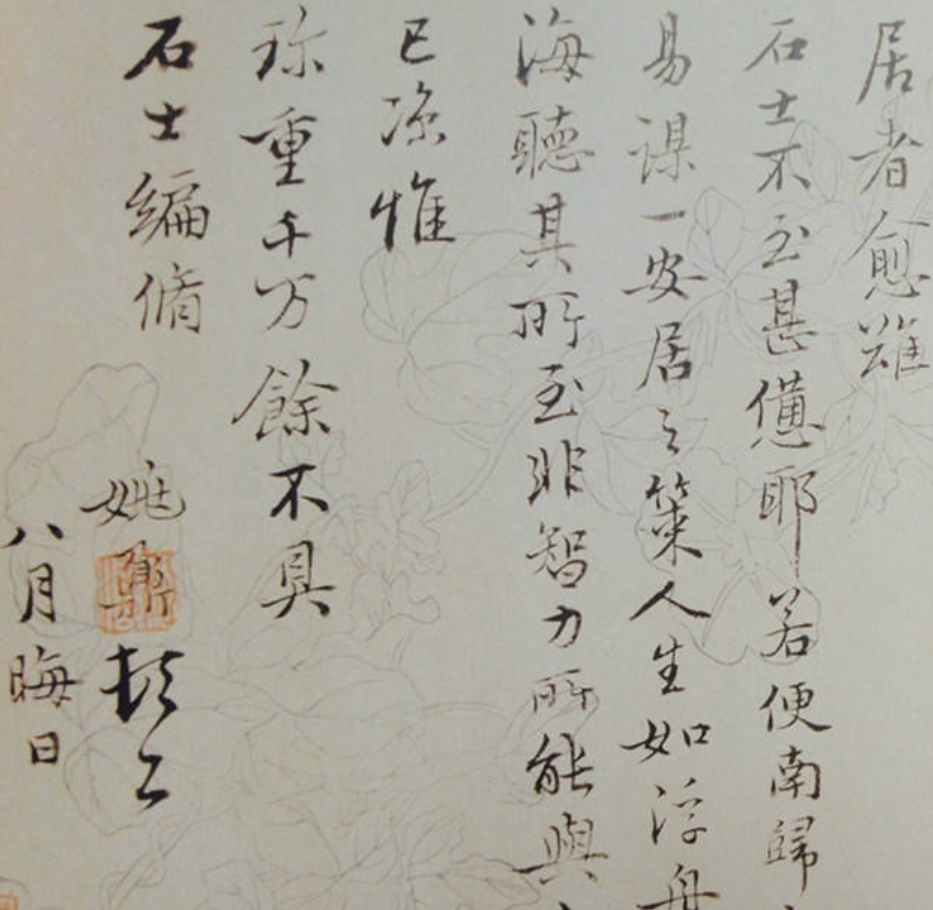 居者愈難
石士不至甚憊耶若便南歸
易謀一安居之策人生如浮舟
海聽其所至非智力所能與
已涼惟
珎重千万餘不具
石士編脩
姚鼐頓首
八月晦日